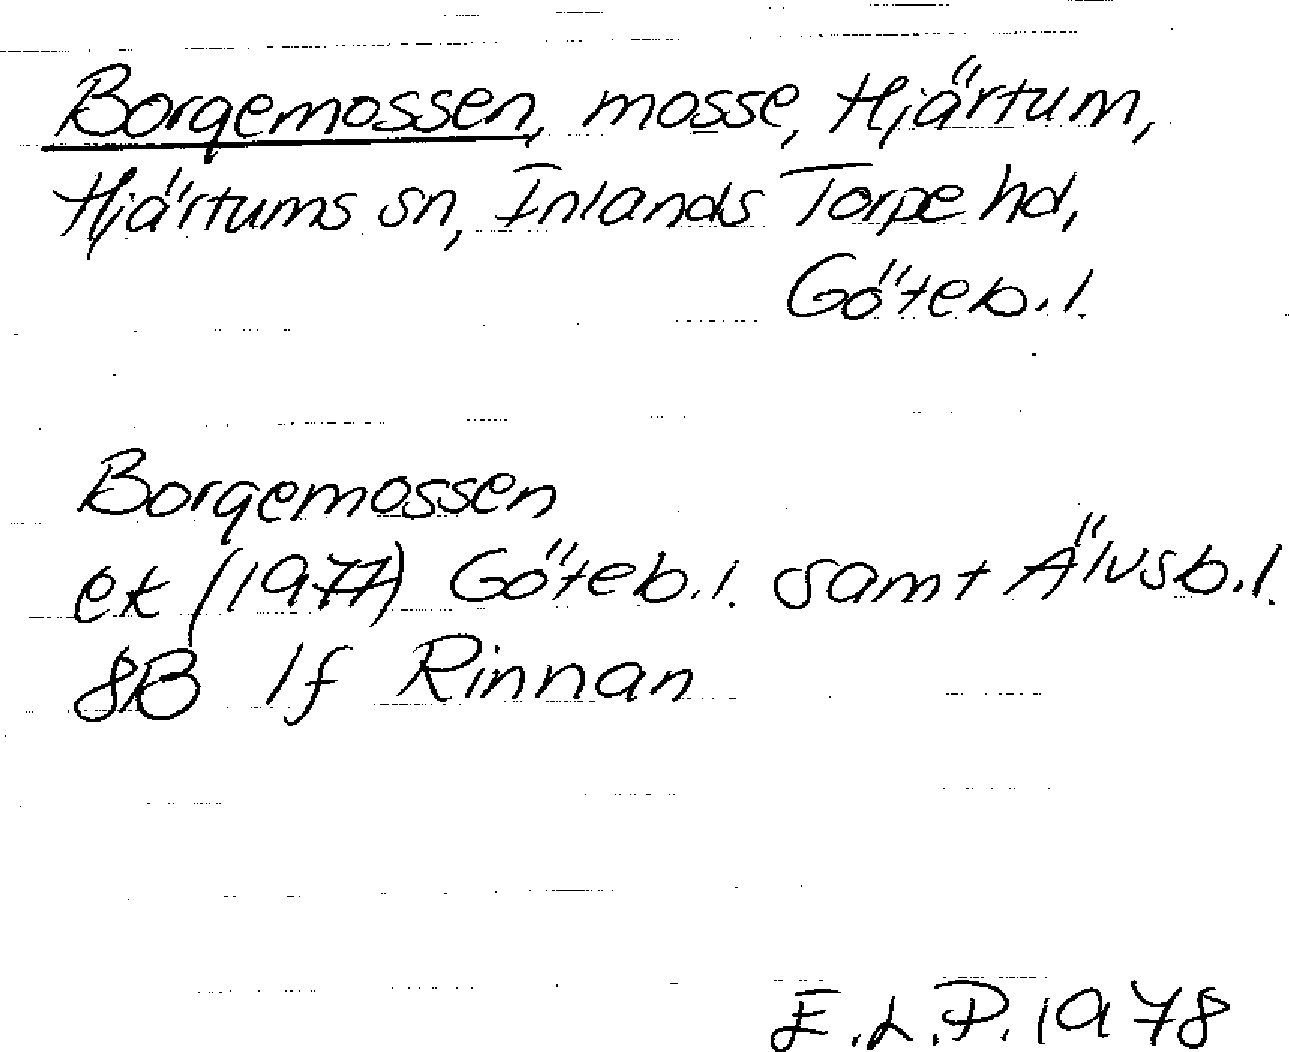 Borgemossen, mosse, Hjärtum,
Hjärtums sn, Inlands Torpe hd,
Göteb.l.
Borgemossen
ek (1977) Göteb.l. samt Älvsb.l.
8B 1f Rinnan
E.L.P. 1978